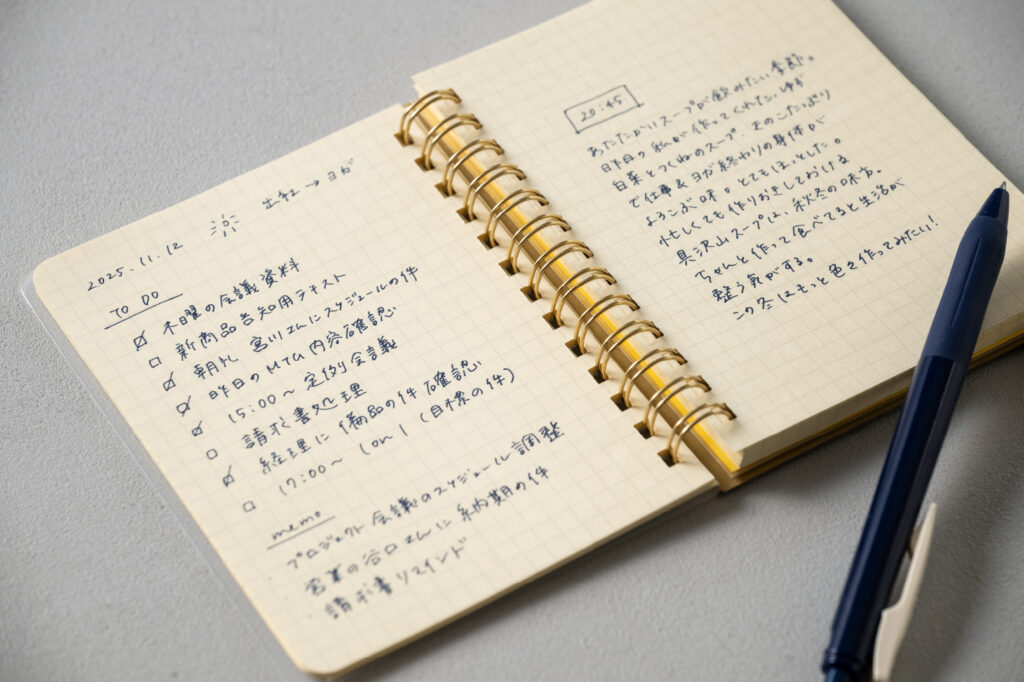 2025.11.12
出社→ヨガ
TO DO
木曜の会議資料
新商品告知用テキスト
朝礼 宮川さんにスケジュールの件
昨日のMTG内容確認
15:00〜定例会議
請求書処理
経理に備品の件確認
17:00〜 1on1 (目標の件)
memo
プロジェクト会議のスケジュール調整
営業の谷口さんに納期の件
請求書リマインド
20:45
あたたかいスープが飲みたい季節。
昨日の私が作ってくれた、ゆず
白菜とつくねのスープ。きのこたっぷり
で仕事&ヨガ終わりの身体が
よろこぶ味。とてもほっとした。
忙しくても作りおきしておける
具沢山スープは、秋冬の味方。
ちゃんと作って食べてると生活が
整う気がする。
この冬はもっと色々作ってみたい!